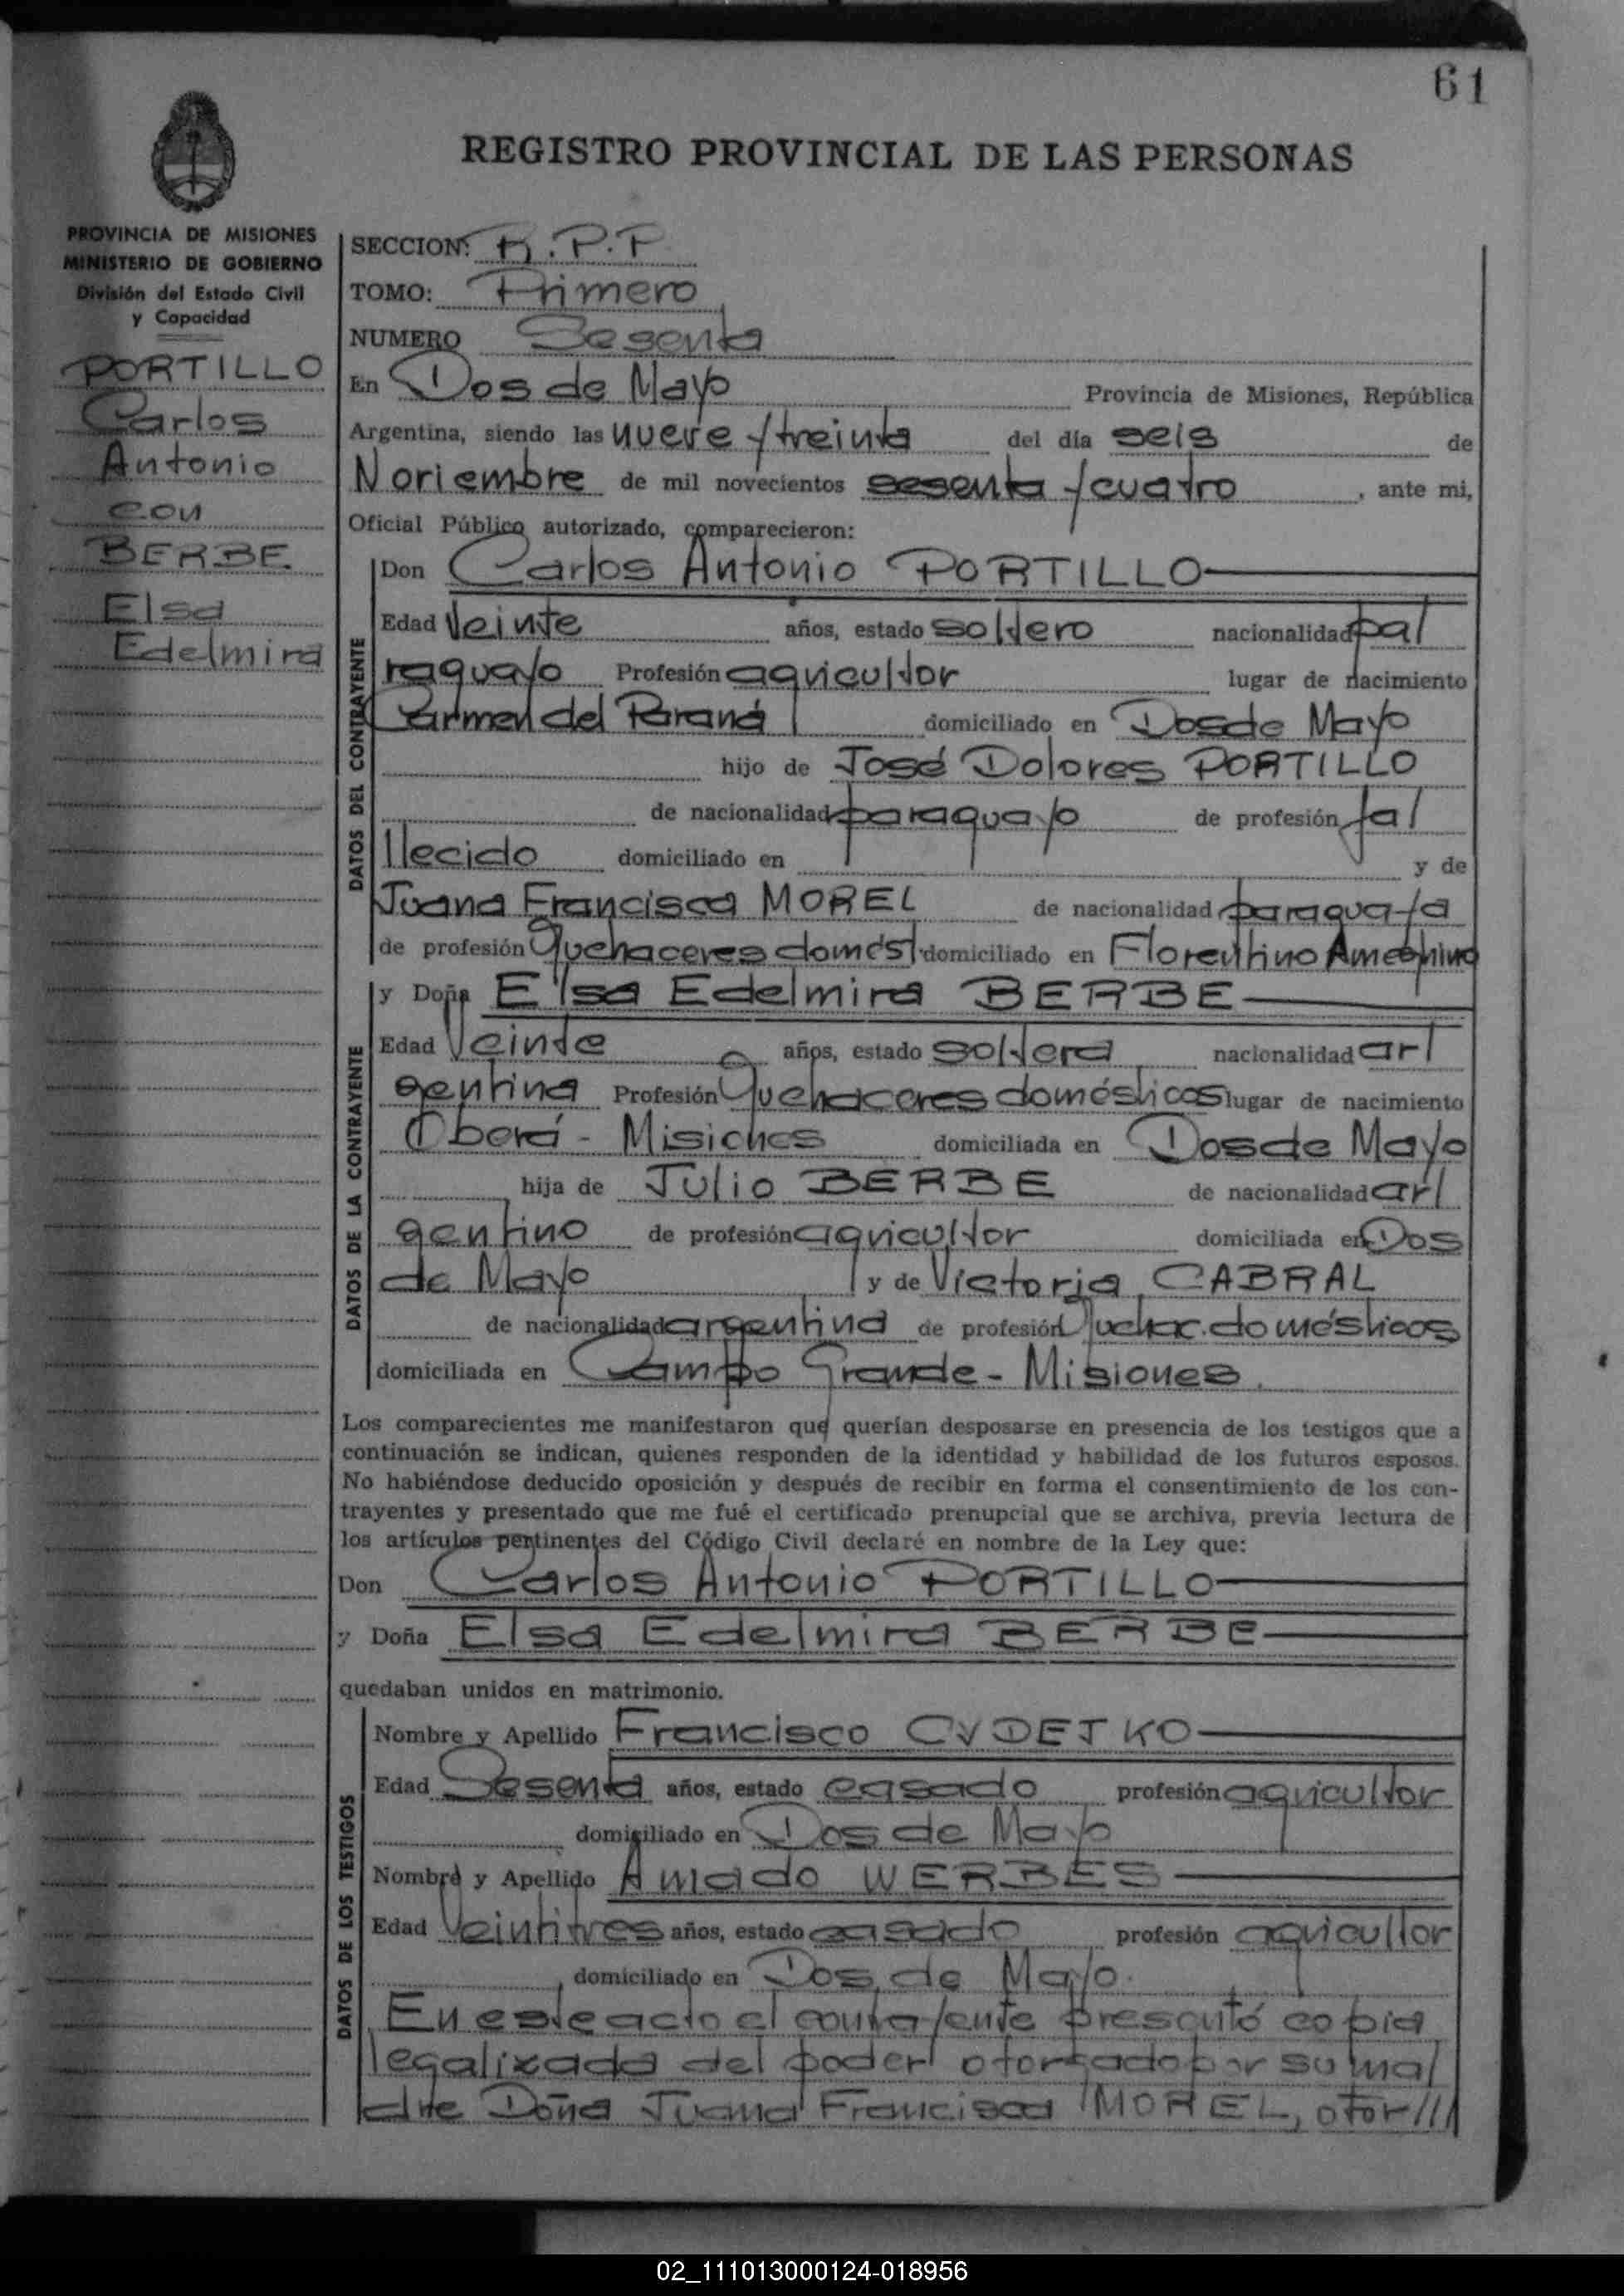 61
REGISTRO PROVINCIAL DE LAS PERSONAS
PROVINCIA DE MISIONES
MINISTERIO DE GOBIERNO
División del Estado Civil
y Capacidad
PORTILLO
Carlos
Antonio
con
BERBE
Elsa
Edelmira
SECCION: R.P.P
TOMO: Primero
NUMERO Sesenta
En Dos de Mayo Provincia de Misiones, República
Argentina, siendo las nueve y treinta del día seis de
Noviembre de mil novecientos sesenta y cuatro, ante mi,
Oficial Público autorizado, comparecieron:
DATOS DEL CONTRAYENTE
Don Carlos Antonio PORTILLO
Edad Veinte años, estado soltero nacionalidad pa/
raguayo Profesión agricultor lugar de nacimiento
Carmen del Paraná domiciliado en Dos de Mayo
hijo de José Dolores PORTILLO
de nacionalidad paraguayo de profesión fa/
llecido domiciliado en y de
Juana Francisca MOREL de nacionalidad paraguaya
de profesión Quehaceres domést. domiciliado en Florentino Ameghino
DATOS DE LA CONTRAYENTE
y Doña Elsa Edelmira BERBE
Edad Veinte años, estado soltera nacionalidad ar/
gentina Profesión Quehaceres domésticos lugar de nacimiento
Oberá - Misiones domiciliada en Dos de Mayo
hija de Julio BERBE de nacionalidad ar/
gentino de profesión agricultor domiciliada en Dos
de Mayo y de Victoria CABRAL
de nacionalidad argentina de profesión Quehac. domésticos
domiciliada en Campo Grande - Misiones.
Los comparecientes me manifestaron que querían desposarse en presencia de los testigos que a
continuación se indican, quienes responden de la identidad y habilidad de los futuros esposos.
No habiéndose deducido oposición y después de recibir en forma el consentimiento de los con-
trayentes y presentado que me fué el certificado prenupcial que se archiva, previa lectura de
los artículos pertinentes del Código Civil declaré en nombre de la Ley que:
Don Carlos Antonio PORTILLO
y Doña Elsa Edelmira BERBE
quedaban unidos en matrimonio.
DATOS DE LOS TESTIGOS
Nombre y Apellido Francisco CVDEJKO
Edad Sesenta años, estado casado profesión agricultor
domiciliado en Dos de Mayo
Nombre y Apellido Amado WERBES
Edad Veintitres años, estado casado profesión agricultor
domiciliado en Dos de Mayo.
En este acto el contrayente presentó copia
legalizada del poder otorgado por su ma/
dre Doña Juana Francisca MOREL, otor///
02_111013000124-018956